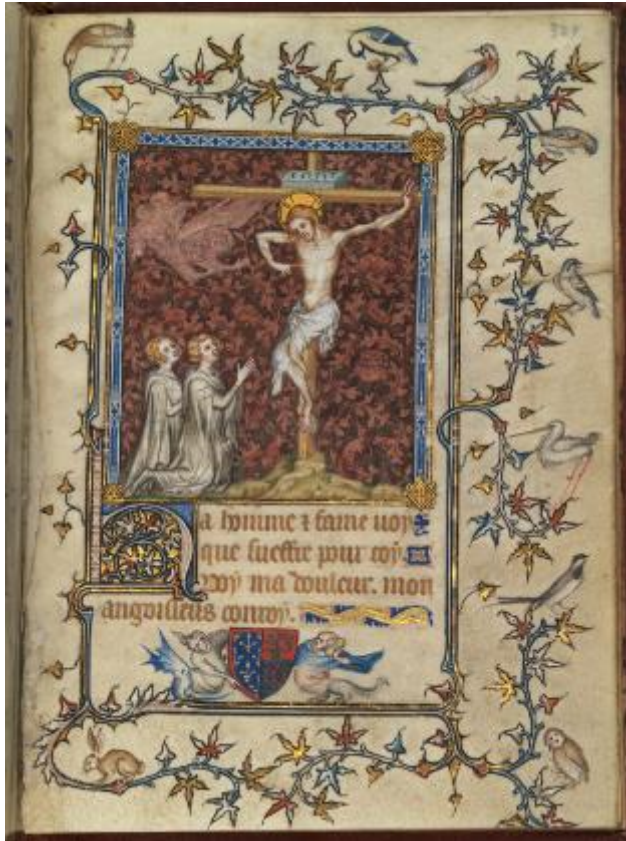 a homme ⁊ fame voy
que sueffre pour toy
voy ma douleur. mon
angoisseus conroy.